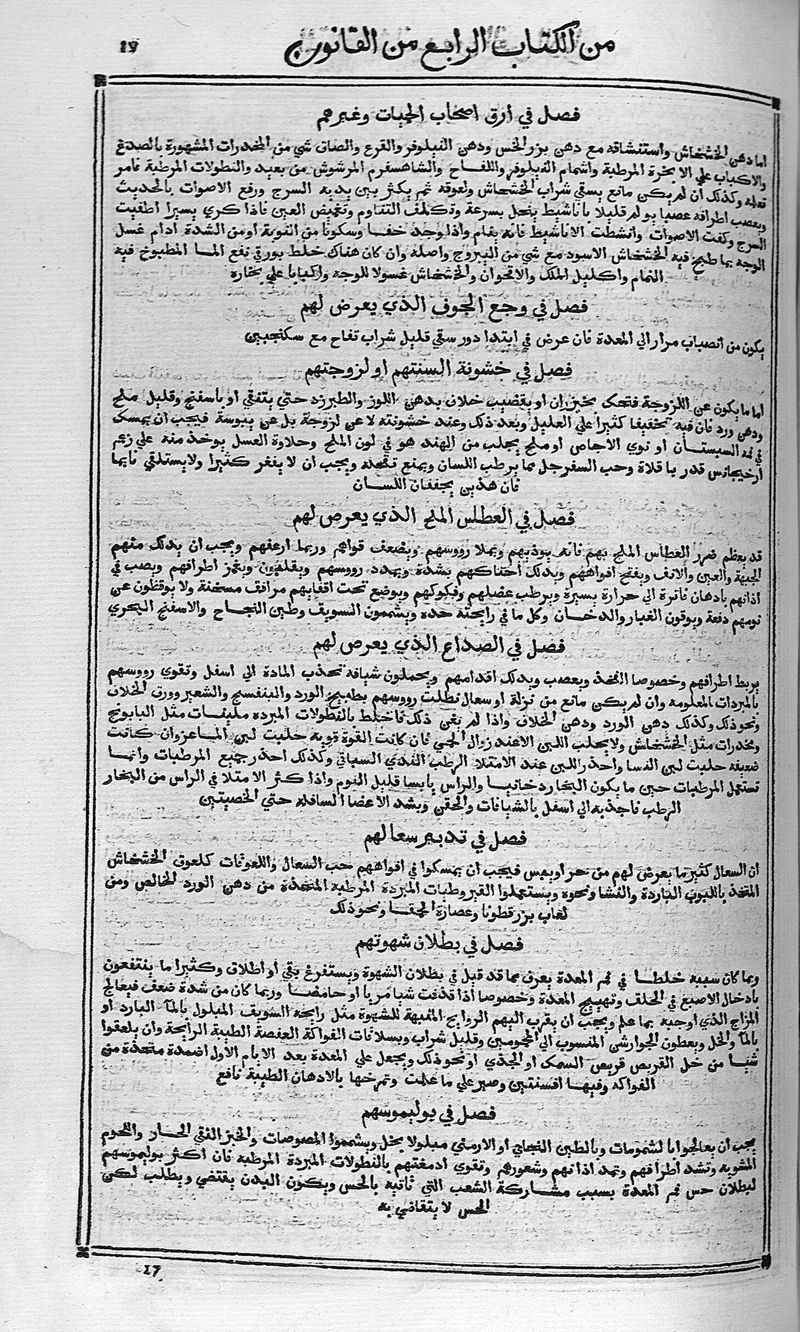 من الكتاب الرابع من القانون
١٧
فصل في ارق اصحاب الحميات وغيرهم
اما دهن الخشخاش واستنشاقه مع دهن بزر الخس ودهن النيلوفر والقرع والصاق شي من المخدرات المشهورة بالصدغ
والاكباب علي الابخرة المرطبة واشمام النيلوفر واللفاح والشاهسفرم المرشوش من بعيد والنطولات المرطبة فامر
تعلمه وكذلك ان لم يكن مانع يسقي شراب الخشخاش ولعوقه ثم يكثر بين يديه السرج ورفع الاصوات بالحديث
ويعصب اطرافه عصبا يولم قليلا باناشيط ينحل بسرعة وتكلف التناوم وتغميض العين فاذا كري يسيرا اطفيت
السرج وكفت الاصوات وانشطت الاناشيط فانه ينام واذا وجد خفا وسكونا من النوبة او من الشدة ادام غسل
الوجه بما طبخ فيه الخشخاش الاسود مع شي من اليبروج واصله وان كان هناك خلط بورقي نفع الما المطبوخ فيه
النمام واكليل الملك والاقحوان والخشخاش غسولا للوجه واكبابا علي بخاره
فصل في وجع الجوف الذي يعرض لهم
يكون من انصباب مرار الي المعدة فان عرض في ابتدا دور سقي قليل شراب تفاح مع سكنجبين
فصل في خشونة السنتهم او لزوجتهم
اما ما يكون عن اللزوجة فتحك بخيزران او بقضيب خلاف بدهن اللوز والطبرزد حتي يتنقي او باسفنج وقليل ملح
ودهن ورد فان فيه تخفيفا كثيرا علي العليل وبعد ذلك وعند خشونته لا عن لزوجة بل عن يبوسة فيجب ان يمسك
في فمه السبستان او نوي الاجاص او ملح يجلب من الهند هو في لون الملح وحلاوة العسل يوخذ منه علي زعم
ارخيجانس قدر باقلاة وحب السفرجل مما يرطب اللسان ويمنع تقحله ويجب ان لا يفغر كثيرا ولا يستلقي نايما
فان هذين يجففان اللسان
فصل في العطاس الملح الذي يعرض لهم
قد يعظم ضرر العطاس الملح بهم فانه يوذيهم ويملا رووسهم ويضعف قواهم وربما ارعفهم ويجب ان يدلك منهم
الجبهة والعين والانف ويفتح افواههم ويدلك احناكهم بشدة ويمدد رووسهم ويقلبون ويغمز اطرافهم ويصب في
اذانهم بادهان فاترة الي حرارة يسيرة ويرطب عضلهم وفكوكهم ويوضع تحت اقفايهم مرافق مسخنة ولا يوقظون عن
نومهم دفعة ويوقون الغبار والدخان وكل ما في رايحته حده ويشممون السويق وطين النجاح والاسفنج البحري
فصل في الصداع الذي يعرض لهم
يربط اطرافهم وخصوصا الفخذ ويعصب ويدلك اقدامهم ويحملون شيافه تجذب المادة الي اسفل وتقوي رووسهم
بالمبردات المعلومه وان لم يكن مانع من نزلة او سعال نطلت رووسهم بطبيخ الورد والبنفسج والشعير وورق الخلاف
ونحو ذلك وكذلك دهن الورد ودهن الخلاف واذا لم يغن ذلك فاخلط بالنطولات المبرده ملينات مثل البابونج
ومخدرات مثل الخشخاش ولا يحلب اللبن الا عند زوال الحمي فان كانت القوة قوية حلبت لبن الماعز وان كانت
ضعيفه حلبت لبن النسا واحذر اللبن عند الامتلا الرطب البدني السباتي وكذلك احذر جميع المرطبات وانما
تستعمل المرطبات حين ما يكون البخارد خانيا والراس يابسا قليل النوم واذا كثر الامتلا في الراس من البخار
الرطب فاجذبه الي اسفل بالشيافات والحقن ويشد الاعضا السافله حتي الخصيتين
فصل في تدبير سعالهم
ان السعال كثيرا ما يعرض لهم من حر او يبس فيجب ان يمسكوا في افواههم حب السعال واللعوقات كلعوق الخشخاش
المتخذ باللبوب الباردة والنشا ونحوه ويستعملوا القيروطيات المبردة المرطبه المتخذة من دهن الورد الخالص ومن
لعاب بزر قطونا وعصارة الحمقا ونحو ذلك
فصل في بطلان شهوتهم
وبما كان سببه خلطا في فم المعدة يعرف بما قد قيل في بطلان الشهوة ويستفرغ بقي او اطلاق وكثيرا ما ينتفعون
بادخال الاصبع في الحلق وتهييج المعدة وخصوصا اذا قذفت شيا مريا او حامضا وربما كان من شدة ضعف فيعالج
المزاج الذي اوجبه بما علم ويجب ان يقرب اليهم الروايح المنبهة للشهوة مثل رايحه السويق المبلول بالما البارد او
بالما والخل ويعطون الجوارشن المنسوب الي المحمومين وقليل شراب وبسلافات الفواكة العفصة الطيبة الرايحة وان يلعقوا
شيا من خل القريص قريص السمك او الجدي او نحو ذلك ويجعل علي المعدة بعد الايام الاول اضمدة متخذة من
الفواكه وفيها افسنتين وصبر علي ما علمت وتمرخها بالادهان الطيبة نافع
فصل في بوليموسهم
يجب ان يعالجوا بالشمومات وبالطين النجاحي او الارمني مبلولا بخل ويشمموا المصوصات والخبز النقي الحار واللحوم
المشويه وتشد اطرافهم وتمد اذانهم وشعورهم وتقوي ادمغتهم بالنطولات المبردة المرطبه فان اكثر بوليموسهم
لبطلان حس فم المعدة بسبب مشاركة الشعب التي تاتيه بالحس ويكون البدن يقتضي ويطلب لكن
الحس لا يتقاضي به
١٧